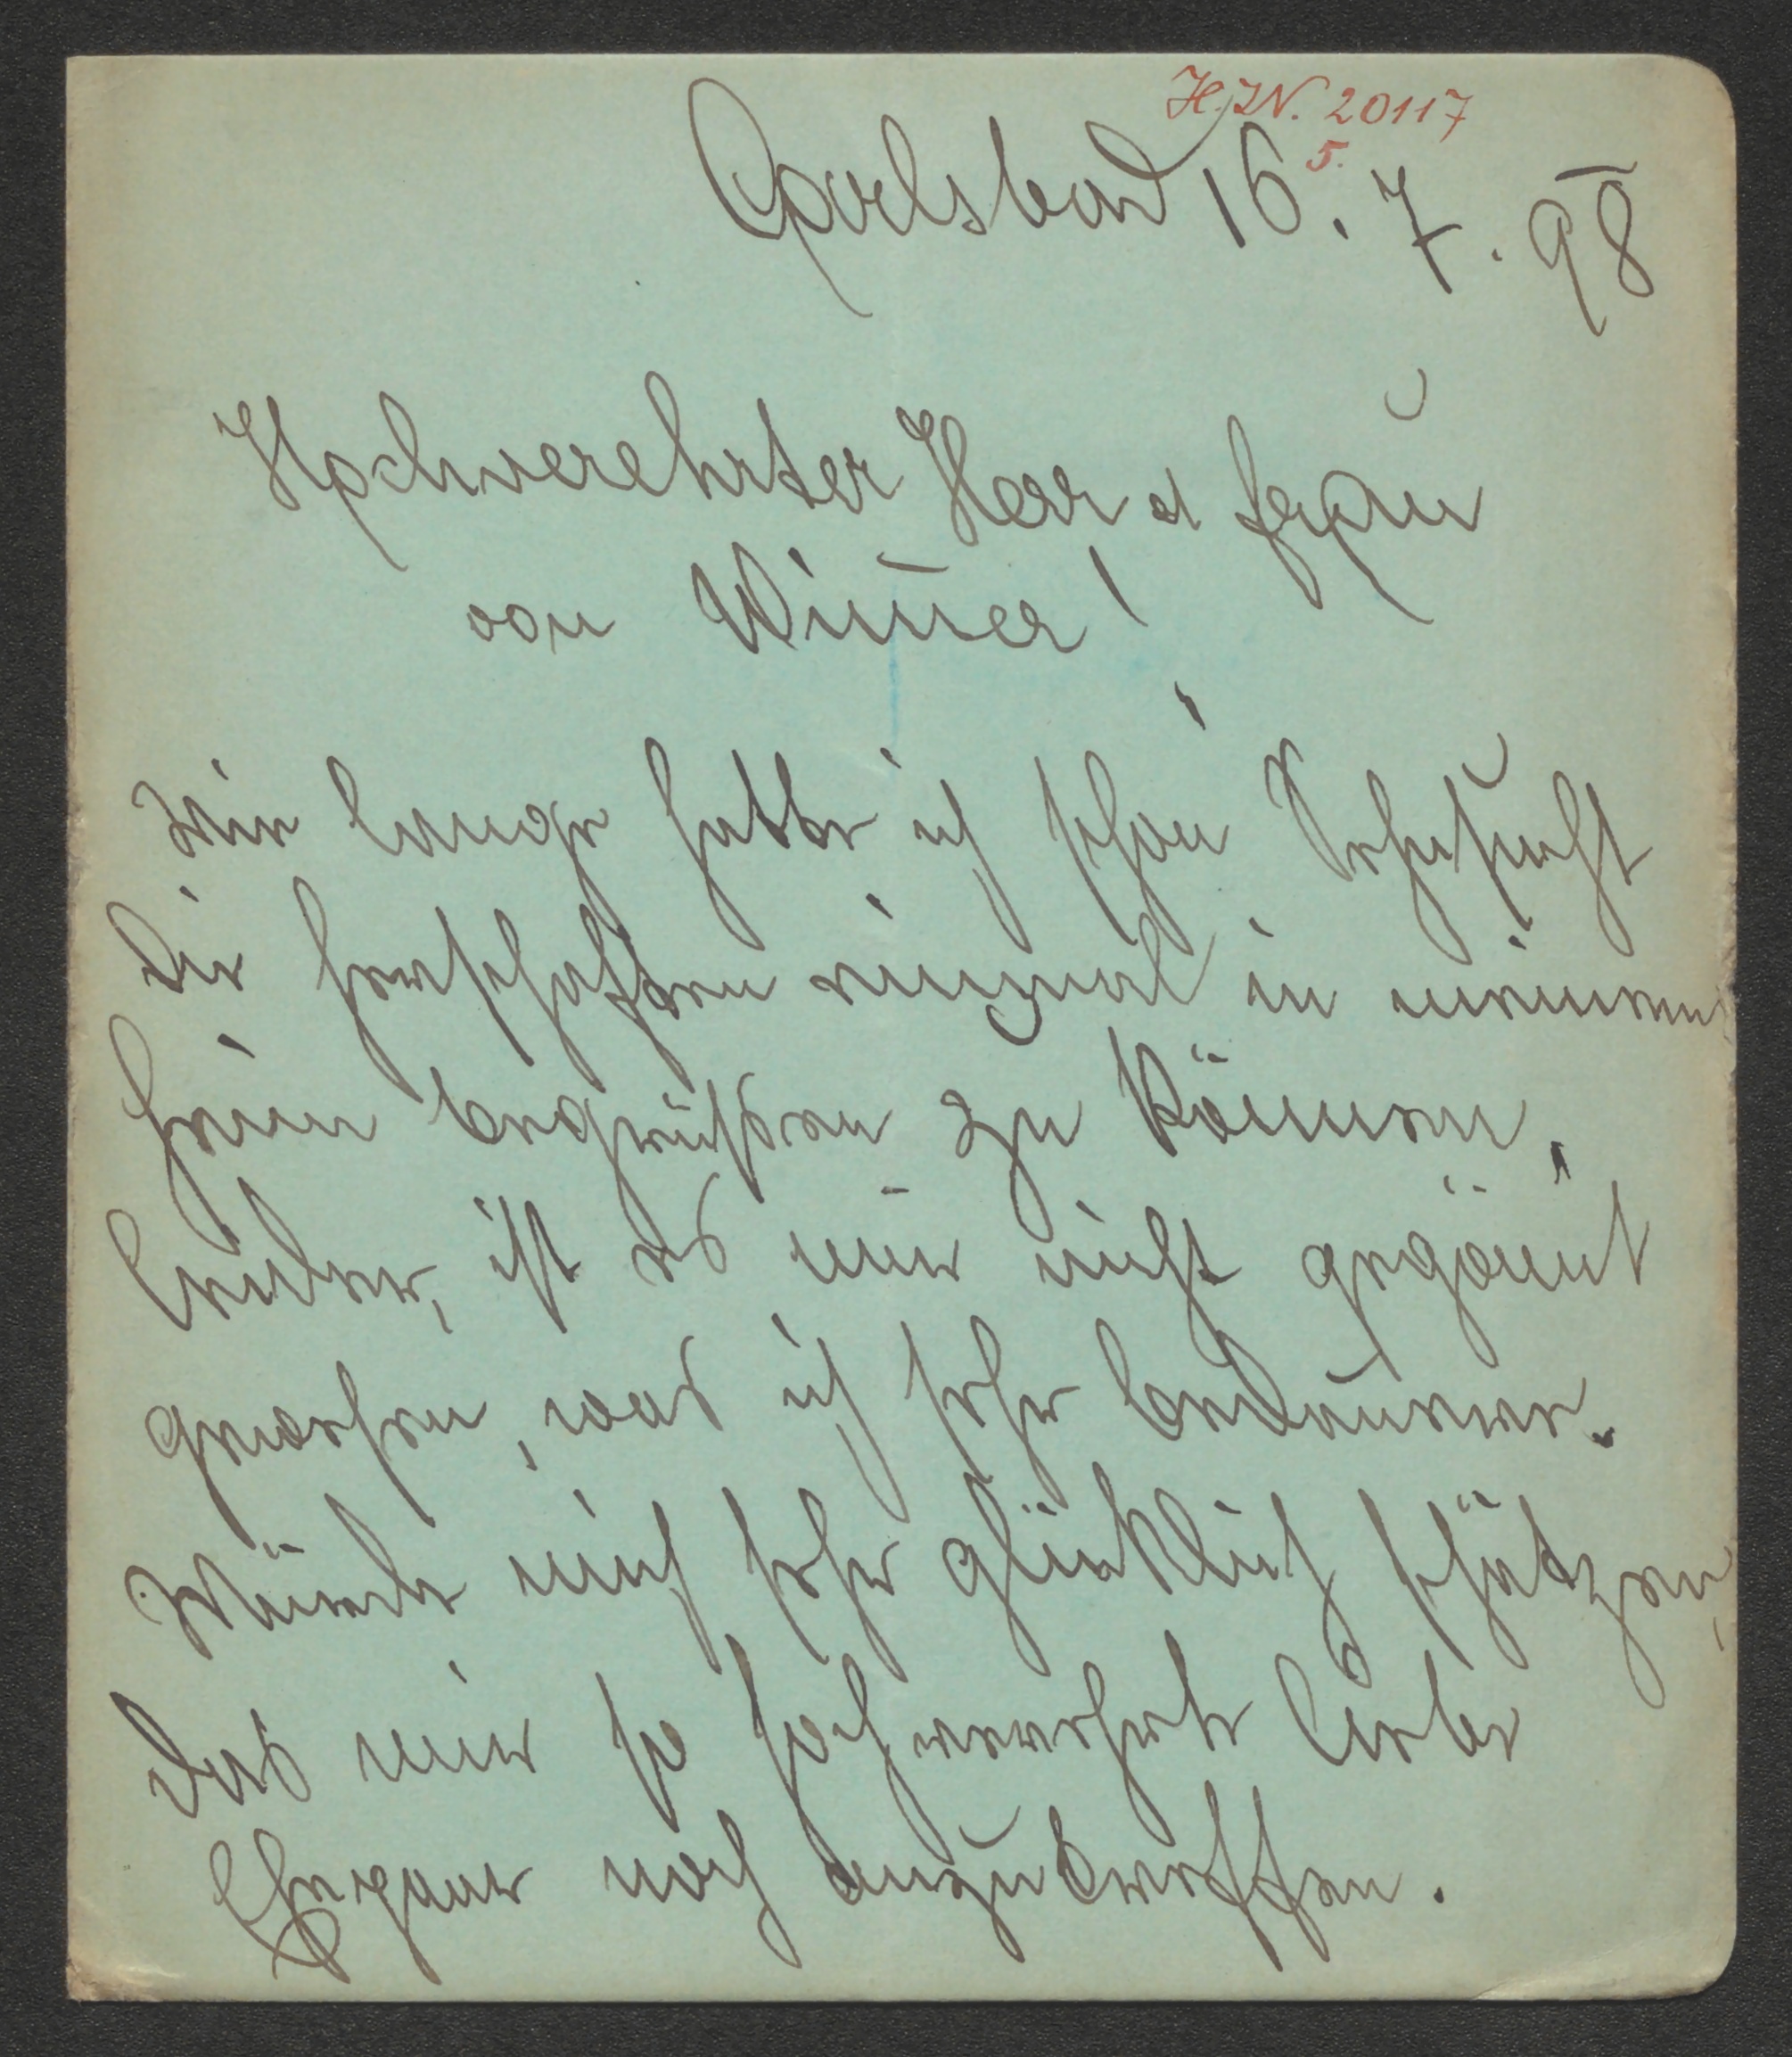 H.I.N. 20117
5.
Carlsbad 16. 7. 98
Hochverehrter Herr et Frau
von Wimer!
Wie lange hatte ich schon Sehnsucht
die Herschaften einmal in meinem
Heim begrüßen zu können,
leider, ist es mir nicht gegönnt
gewesen, was ich sehr bedauere.
Würde mich sehr glücklich schätzen,
das mir so hochverehrte liebe
Ehepaar noch anzutreffen.